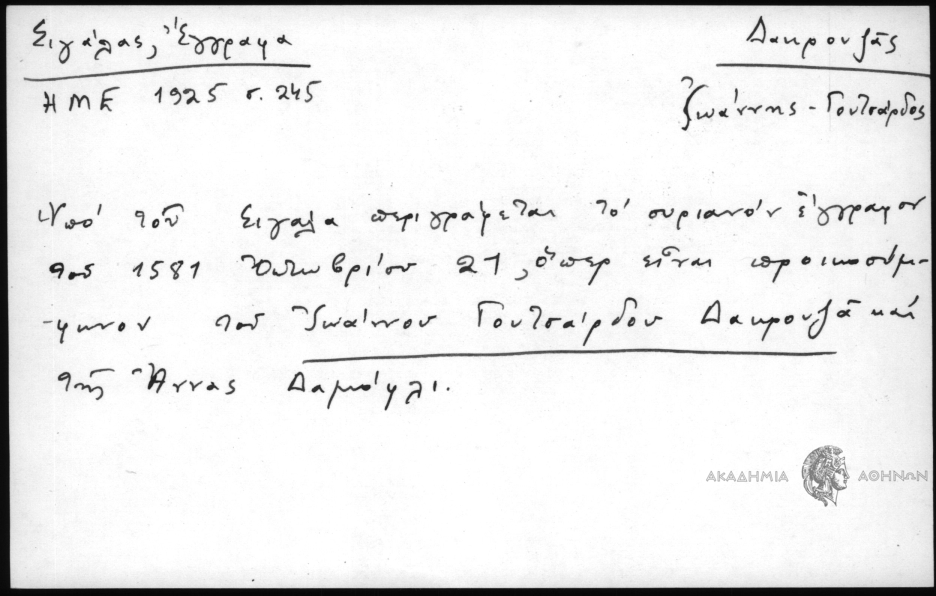 Σιγάλας, Ἔγγραφα
Δακρουζᾶς
ΗΜΕ 1925 σ. 245
Ἰωάννης - Γουτσάρδος
Ὑπό τοῦ Σιγαλα περιγράφεται τό συριανόν ἔγγραφον
τοῦ 1581 Ὀκτωβρίου 21, ὅπερ εἶναι προικοσύμ-
-φωνον τοῦ Ἰωάννου Γουτσάρδου Δακρουζᾶ καί
τῆς Ἄννας
ΑΚΑΔΗΜΙΑ ΑΘΗΝΩΝ